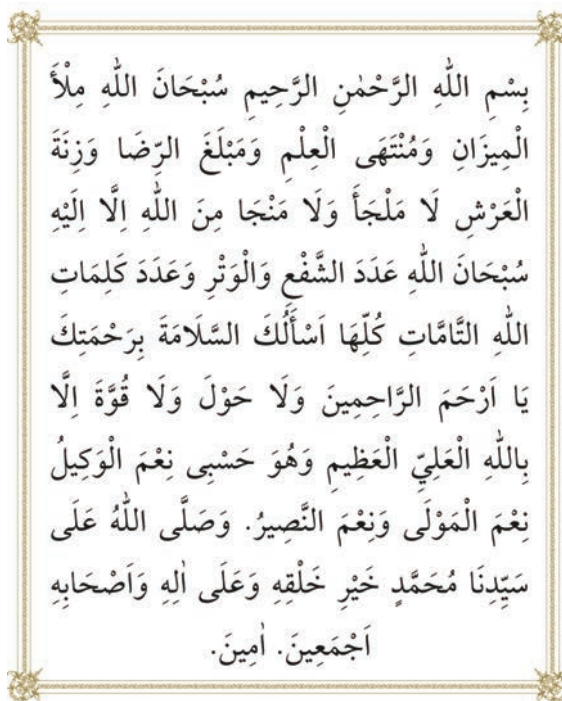 بِسْمِ اللّٰهِ الرَّحْمٰنِ الرَّحِيمِ سُبْحَانَ اللّٰهِ مِلْأَ
الْمِيزَانِ وَمُنْتَهَى الْعِلْمِ وَمَبْلَغَ الرِّضَا وَزِنَةَ
الْعَرْشِ لَا مَلْجَأَ وَلَا مَنْجَا مِنَ اللّٰهِ اِلَّا اِلَيْهِ
سُبْحَانَ اللّٰهِ عَدَدَ الشَّفْعِ وَالْوَتْرِ وَعَدَدَ كَلِمَاتِ
اللّٰهِ التَّامَّاتِ كُلِّهَا اَسْأَلُكَ السَّلَامَةَ بِرَحْمَتِكَ
يَا اَرْحَمَ الرَّاحِمِينَ وَلَا حَوْلَ وَلَا قُوَّةَ اِلَّا
بِاللّٰهِ الْعَلِيِّ الْعَظِيمِ وَهُوَ حَسْبِى نِعْمَ الْوَكِيلُ
نِعْمَ الْمَوْلَى وَنِعْمَ النَّصِيرُ. وَصَلَّى اللّٰهُ عَلَى
سَيِّدِنَا مُحَمَّدٍ خَيْرِ خَلْقِهِ وَعَلَى اٰلِهِ وَاَصْحَابِهِ
اَجْمَعِينَ. اٰمِينَ.